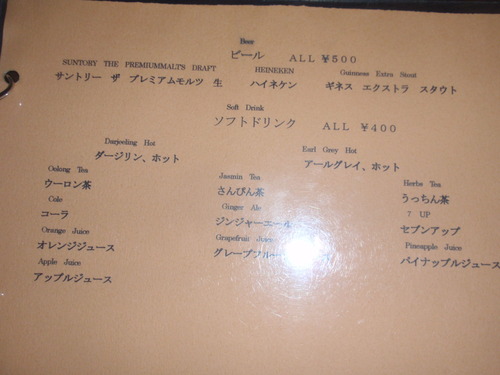 Beer
ビール ALL ￥500
SUNTORY THE PREMIUMMALT'S DRAFT HEINEKEN Guinness Extra Stout
サントリー ザ プレミアムモルツ 生 ハイネケン ギネス エクストラ スタウト
Soft Drink
ソフトドリンク ALL ￥400
Darjeeling Hot Earl Grey Hot
ダージリン、ホット アールグレイ、ホット
Oolong Tea Jasmin Tea Herbs Tea
ウーロン茶 さんぴん茶 うっちん茶
Cole Ginger Ale 7 UP
コーラ ジンジャーエール セブンアップ
Orange Juice Grapefruit Juice Pineapple Juice
オレンジジュース グレープフルーツジュース パイナップルジュース
Apple Juice
アップルジュース